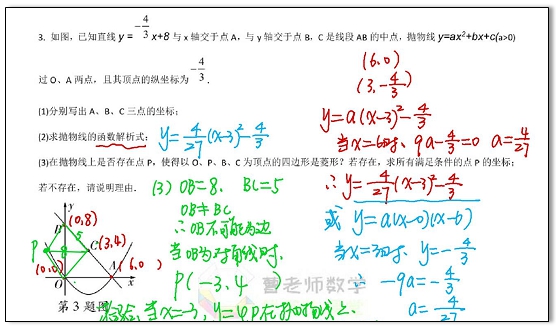 3. 如图，已知直线 y = -4/3 x+8 与 x 轴交于点 A，与 y 轴交于点 B，C 是线段 AB 的中点，抛物线 y=ax²+bx+c(a>0)
过 O、A 两点，且其顶点的纵坐标为 -4/3.
(1)分别写出 A、B、C 三点的坐标；
(2)求抛物线的函数解析式；
(3)在抛物线上是否存在点 P，使得以 O、P、B、C 为顶点的四边形是菱形？若存在，求所有满足条件的点 P 的坐标；
若不存在，请说明理由.
y=4/27(x-3)²-4/3
(6,0)
(3,-4/3)
y=a(x-3)²-4/3
当x=6时, 9a-4/3=0 a=4/27
∴y=4/27(x-3)²-4/3
或 y=a(x-0)(x-6)
当x=3时, y=-4/3
∴ -9a=-4/3
a=4/27
(3) OB=8, BC=5
OB≠BC
∴OB不可能为边
当OB为对角线时,
P(-3,4)
当x=-3, y=4 P在抛物线上.
y
(0,8)
B
5
P
8
C
(3,4)
(0,0)
A
(6,0)
O
x
第 3 题图
曹老师数学